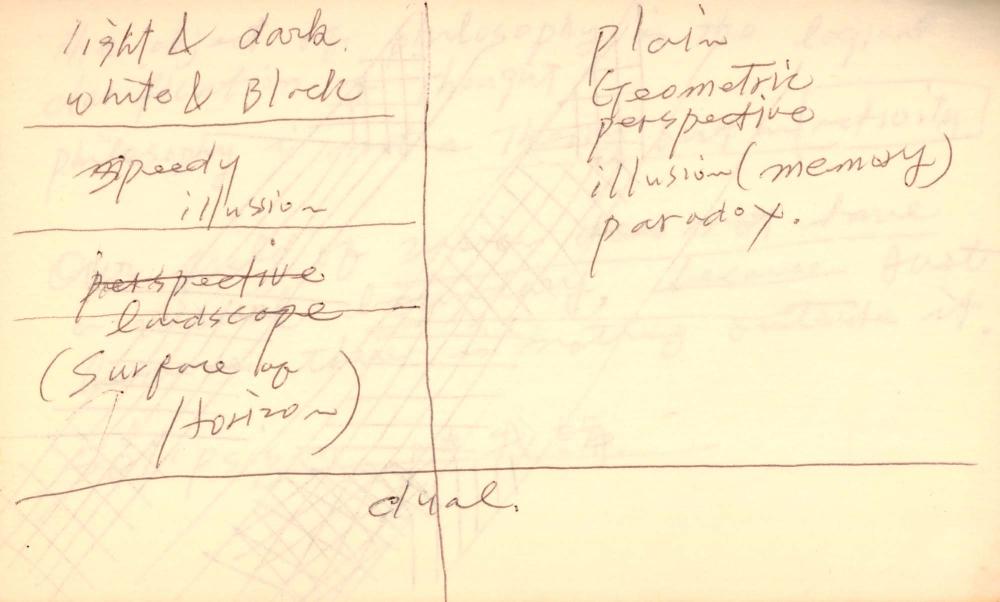 light & dark.
white & Black
speedy
illusion
perspective
landscape
(Surface of
Horizon)
plain
Geometric
perspective
illusion (memory)
paradox.
dual.